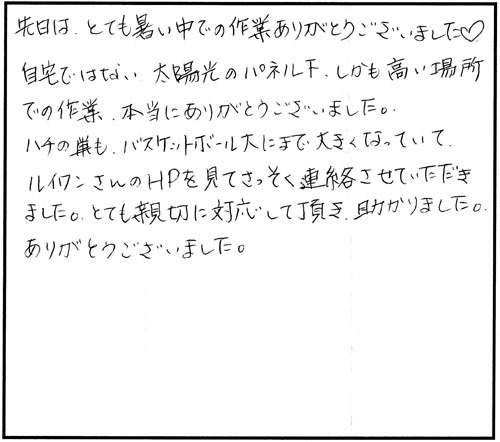 先日は、とても暑い中での作業ありがとうございました♡
自宅ではない 太陽光のパネル下、しかも高い場所
での作業、本当にありがとうございました。
ハチの巣も、バスケットボール大にまで大きくなっていて、
ルイワンさんのHPを見てさっそく連絡させていただき
ました。とても親切に対応して頂き、助かりました。
ありがとうございました。